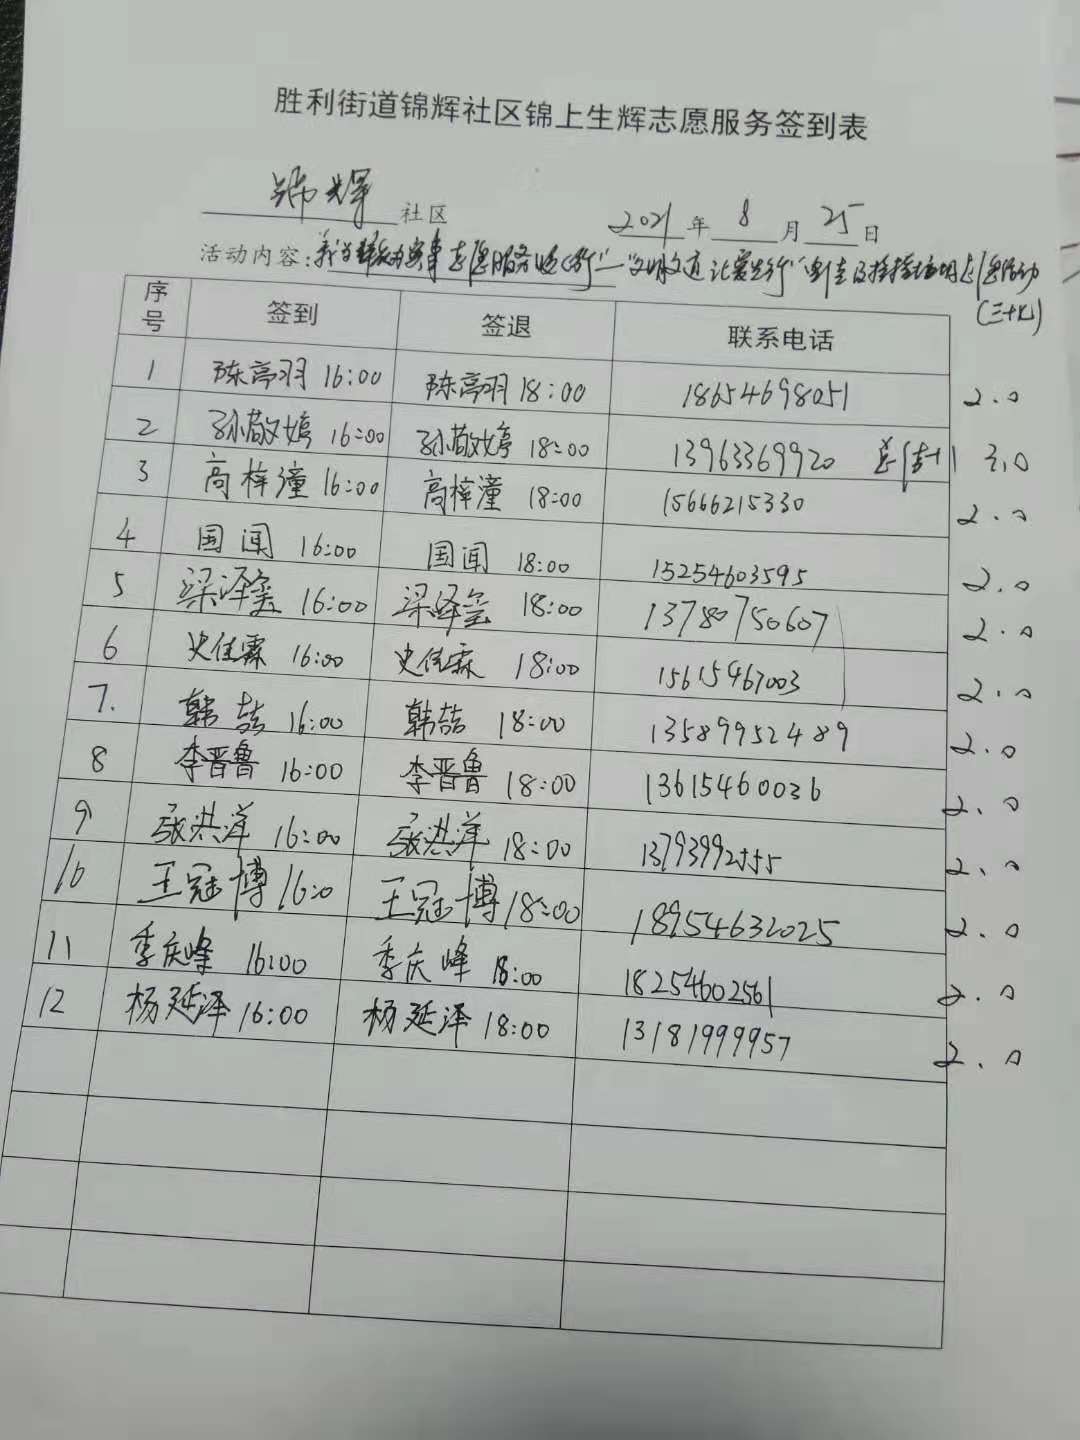 胜利街道锦辉社区锦上生辉志愿服务签到表
锦辉 社区 2021 年 8 月 25 日
活动内容：我为群众办实事志愿服务 "文明交通 让爱先行" 志愿活动
(三十七)
序号 签到 签退 联系电话
1 陈高羽 16:00 陈高羽 18:00 18654698051 2.0
2 孙敬婷 16:00 孙敬婷 18:00 13963369920 3.0
3 高梓潼 16:00 高梓潼 18:00 15666215330 2.0
4 国闻 16:00 国闻 18:00 15254603595 2.0
5 梁泽玺 16:00 梁泽玺 18:00 13780750607 2.0
6 史佳霖 16:00 史佳霖 18:00 15615467003 2.0
7. 韩喆 16:00 韩喆 18:00 13589952489 2.0
8 李晋鲁 16:00 李晋鲁 18:00 13615460036 2.0
9 张洪洋 16:00 张洪洋 18:00 13793992555 2.0
10 王冠博 16:0 王冠博 18:00 18954632025 2.0
11 季庆峰 16:00 季庆峰 18:00 18254602561 2.0
12 杨延泽 16:00 杨延泽 18:00 13181999957 2.0